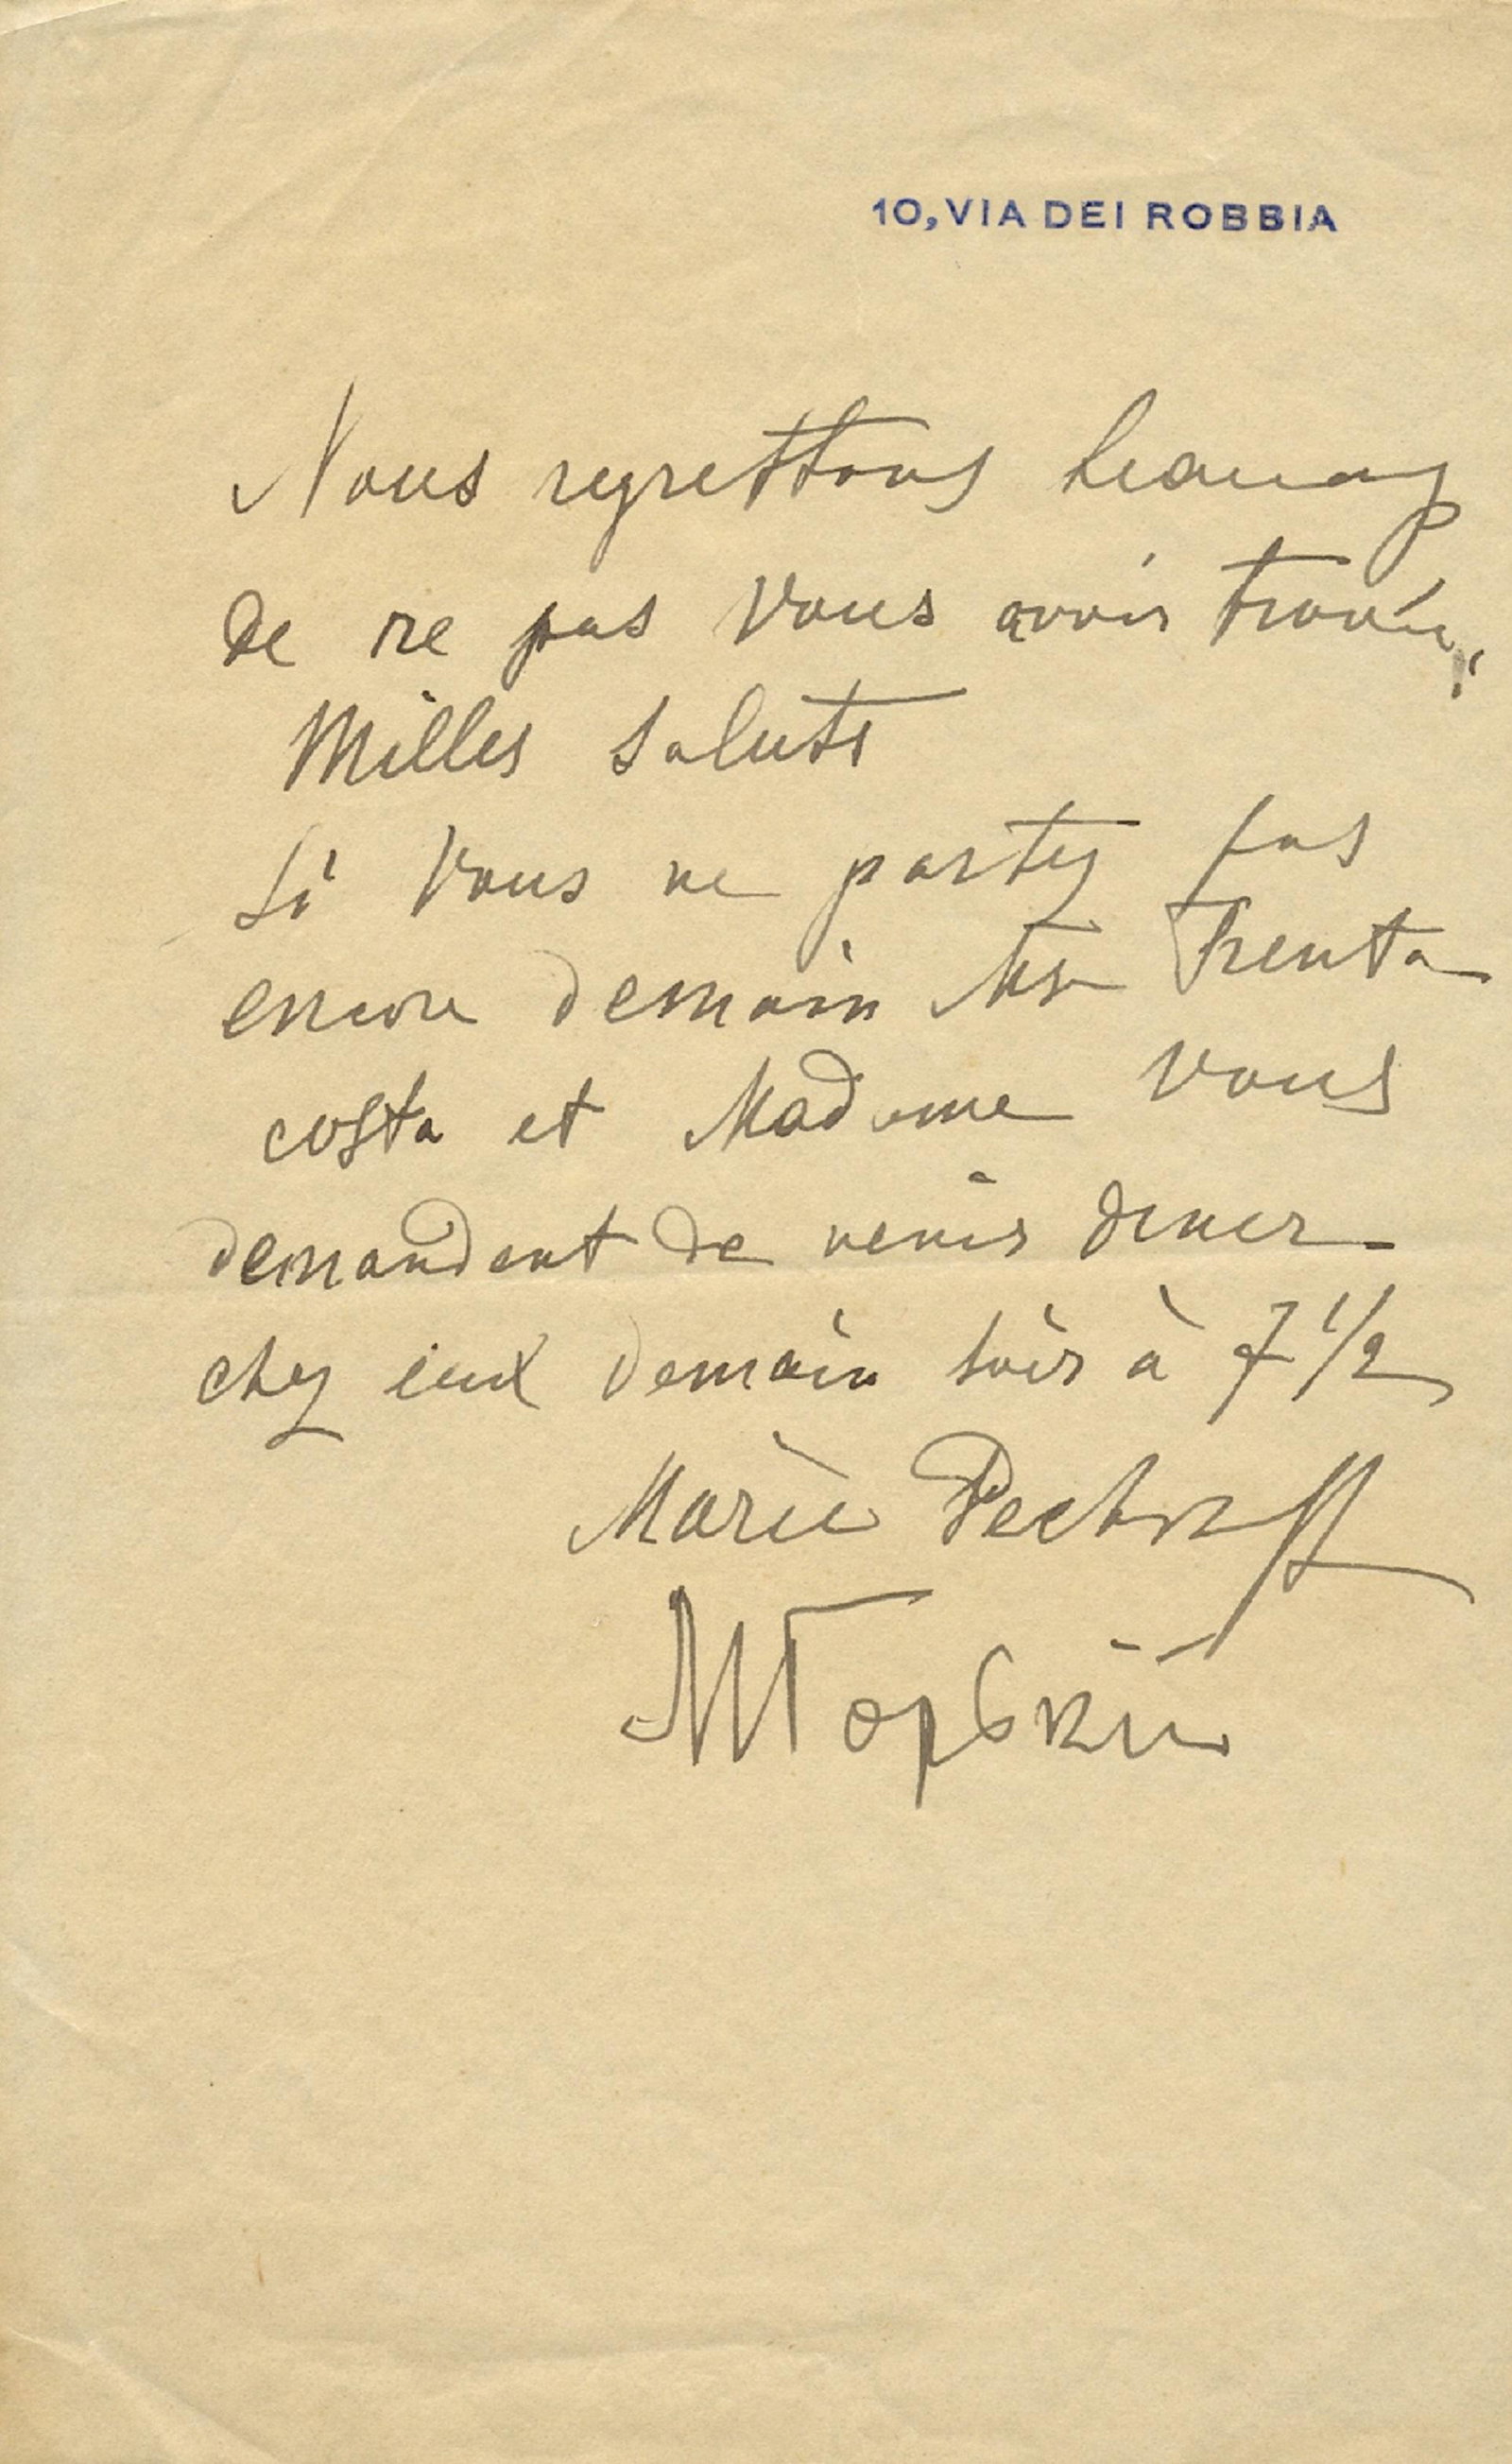 10, VIA DEI ROBBIA
Nous regrettons beaucoup
de ne pas vous avoir trouvé,
Milles saluts
Si vous ne partez pas
encore demain Mr Trenta
costa et Madame vous
demandent de venir diner
chez eux demain soir à 7 1/2
Marie Pechkoff
МГорькiй